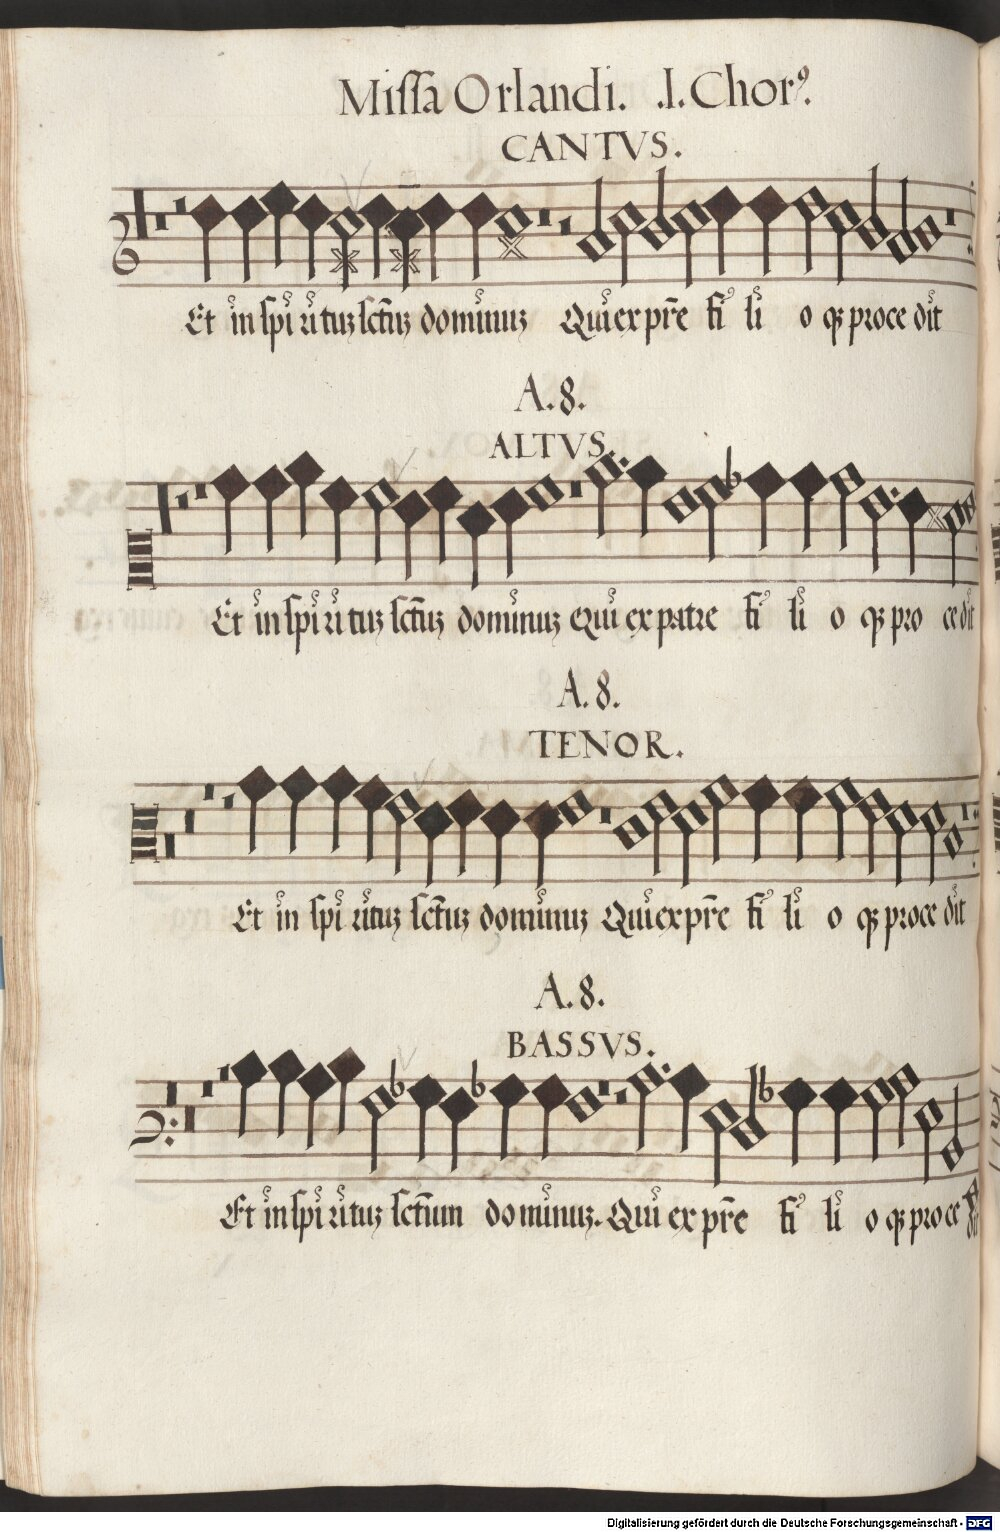 Missa Orlandi. .I. Chorꝰ.
CANTVS.
Et in spi ri tuȝ sctũȝ dominuȝ Qui ex pr̃e fi li o qȝ proce dit
A. 8.
ALTVS.
Et in spi ri tuȝ sctũȝ dominuȝ Qui ex patre fi li o qȝ pro ce dit
A. 8.
TENOR.
Et in spi rituȝ sctũȝ dominuȝ Qui ex pr̃e fi li o qȝ proce dit
A. 8.
BASSVS.
Et in spi ri tuȝ sctũm dominuȝ. Qui ex pr̃e fi li o qȝ proce dit
Digitalisierung gefördert durch die Deutsche Forschungsgemeinschaft - DFG